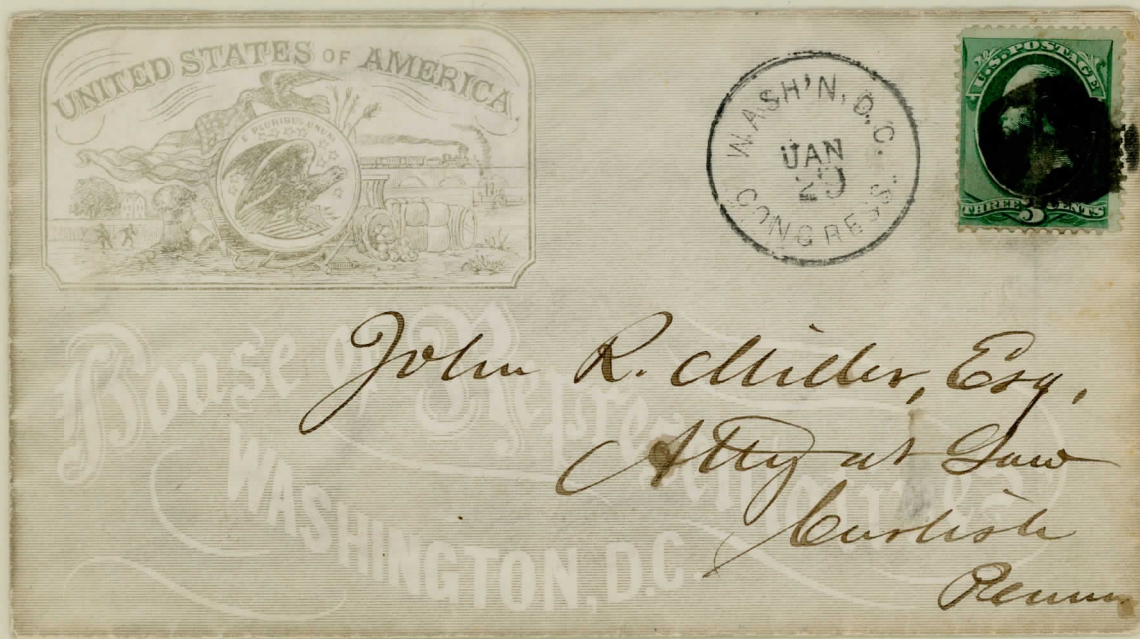 UNITED STATES OF AMERICA
E PLURIBUS UNUM
WASH'N, D.C.
JAN
CONGRESS.
U.S. POSTAGE
THREE 3 CENTS
House of Representatives
WASHINGTON, D.C.
John R. Miller, Esq,
Atty at Law
Carlisle
Penna